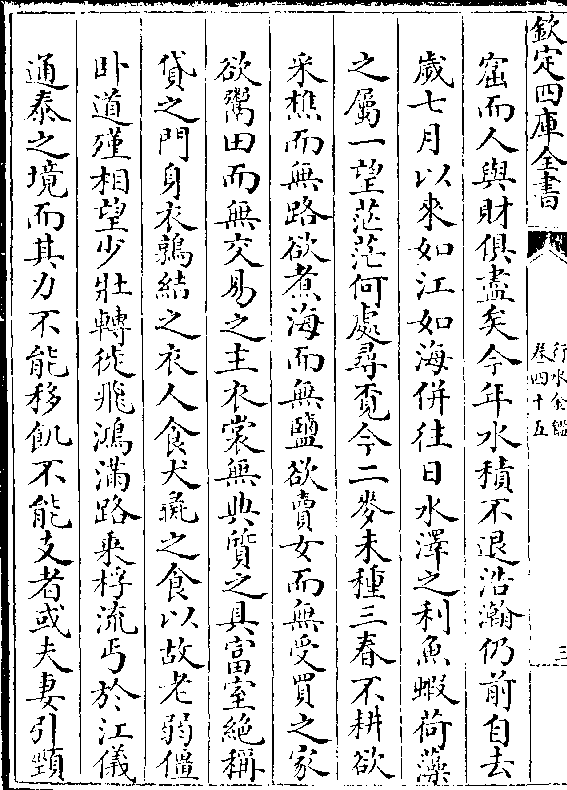 欽定四庫全書
行水金鑑
卷四十五
三
窟而人與財俱盡矣今年水積不退浩瀚仍前自去
歲七月以來如江如海併往日水澤之利魚蝦荷藻
之屬一望茫茫何處尋覓今二麥未種三春不耕欲
采樵而無路欲煮海而無鹽欲賣女而無受買之家
欲鬻田而無交易之主衣裳無典質之具富室絶稱
貸之門身衣鶉結之衣人食犬彘之食以故老弱僵
卧道殣相望少壯轉徙飛鴻滿路乗桴流丐於江儀
通泰之境而其力不能移飢不能支者或夫妻引頸